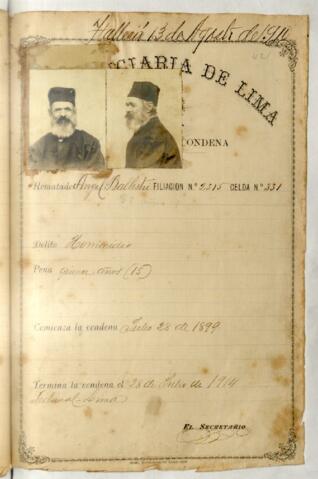 Falleció 13 de Agosto de 1914
CIARIA DE LIMA
CONDENA
Rematado Angel Ballestri FILIACION N.º 2315 CELDA N.º 331
Delito Homicidio
Pena quince años (15)
Comienza la condena Julio 28 de 1899
Termina la condena el 28 de Julio de 1914
Tribunal - Lima
EL SECRETARIO